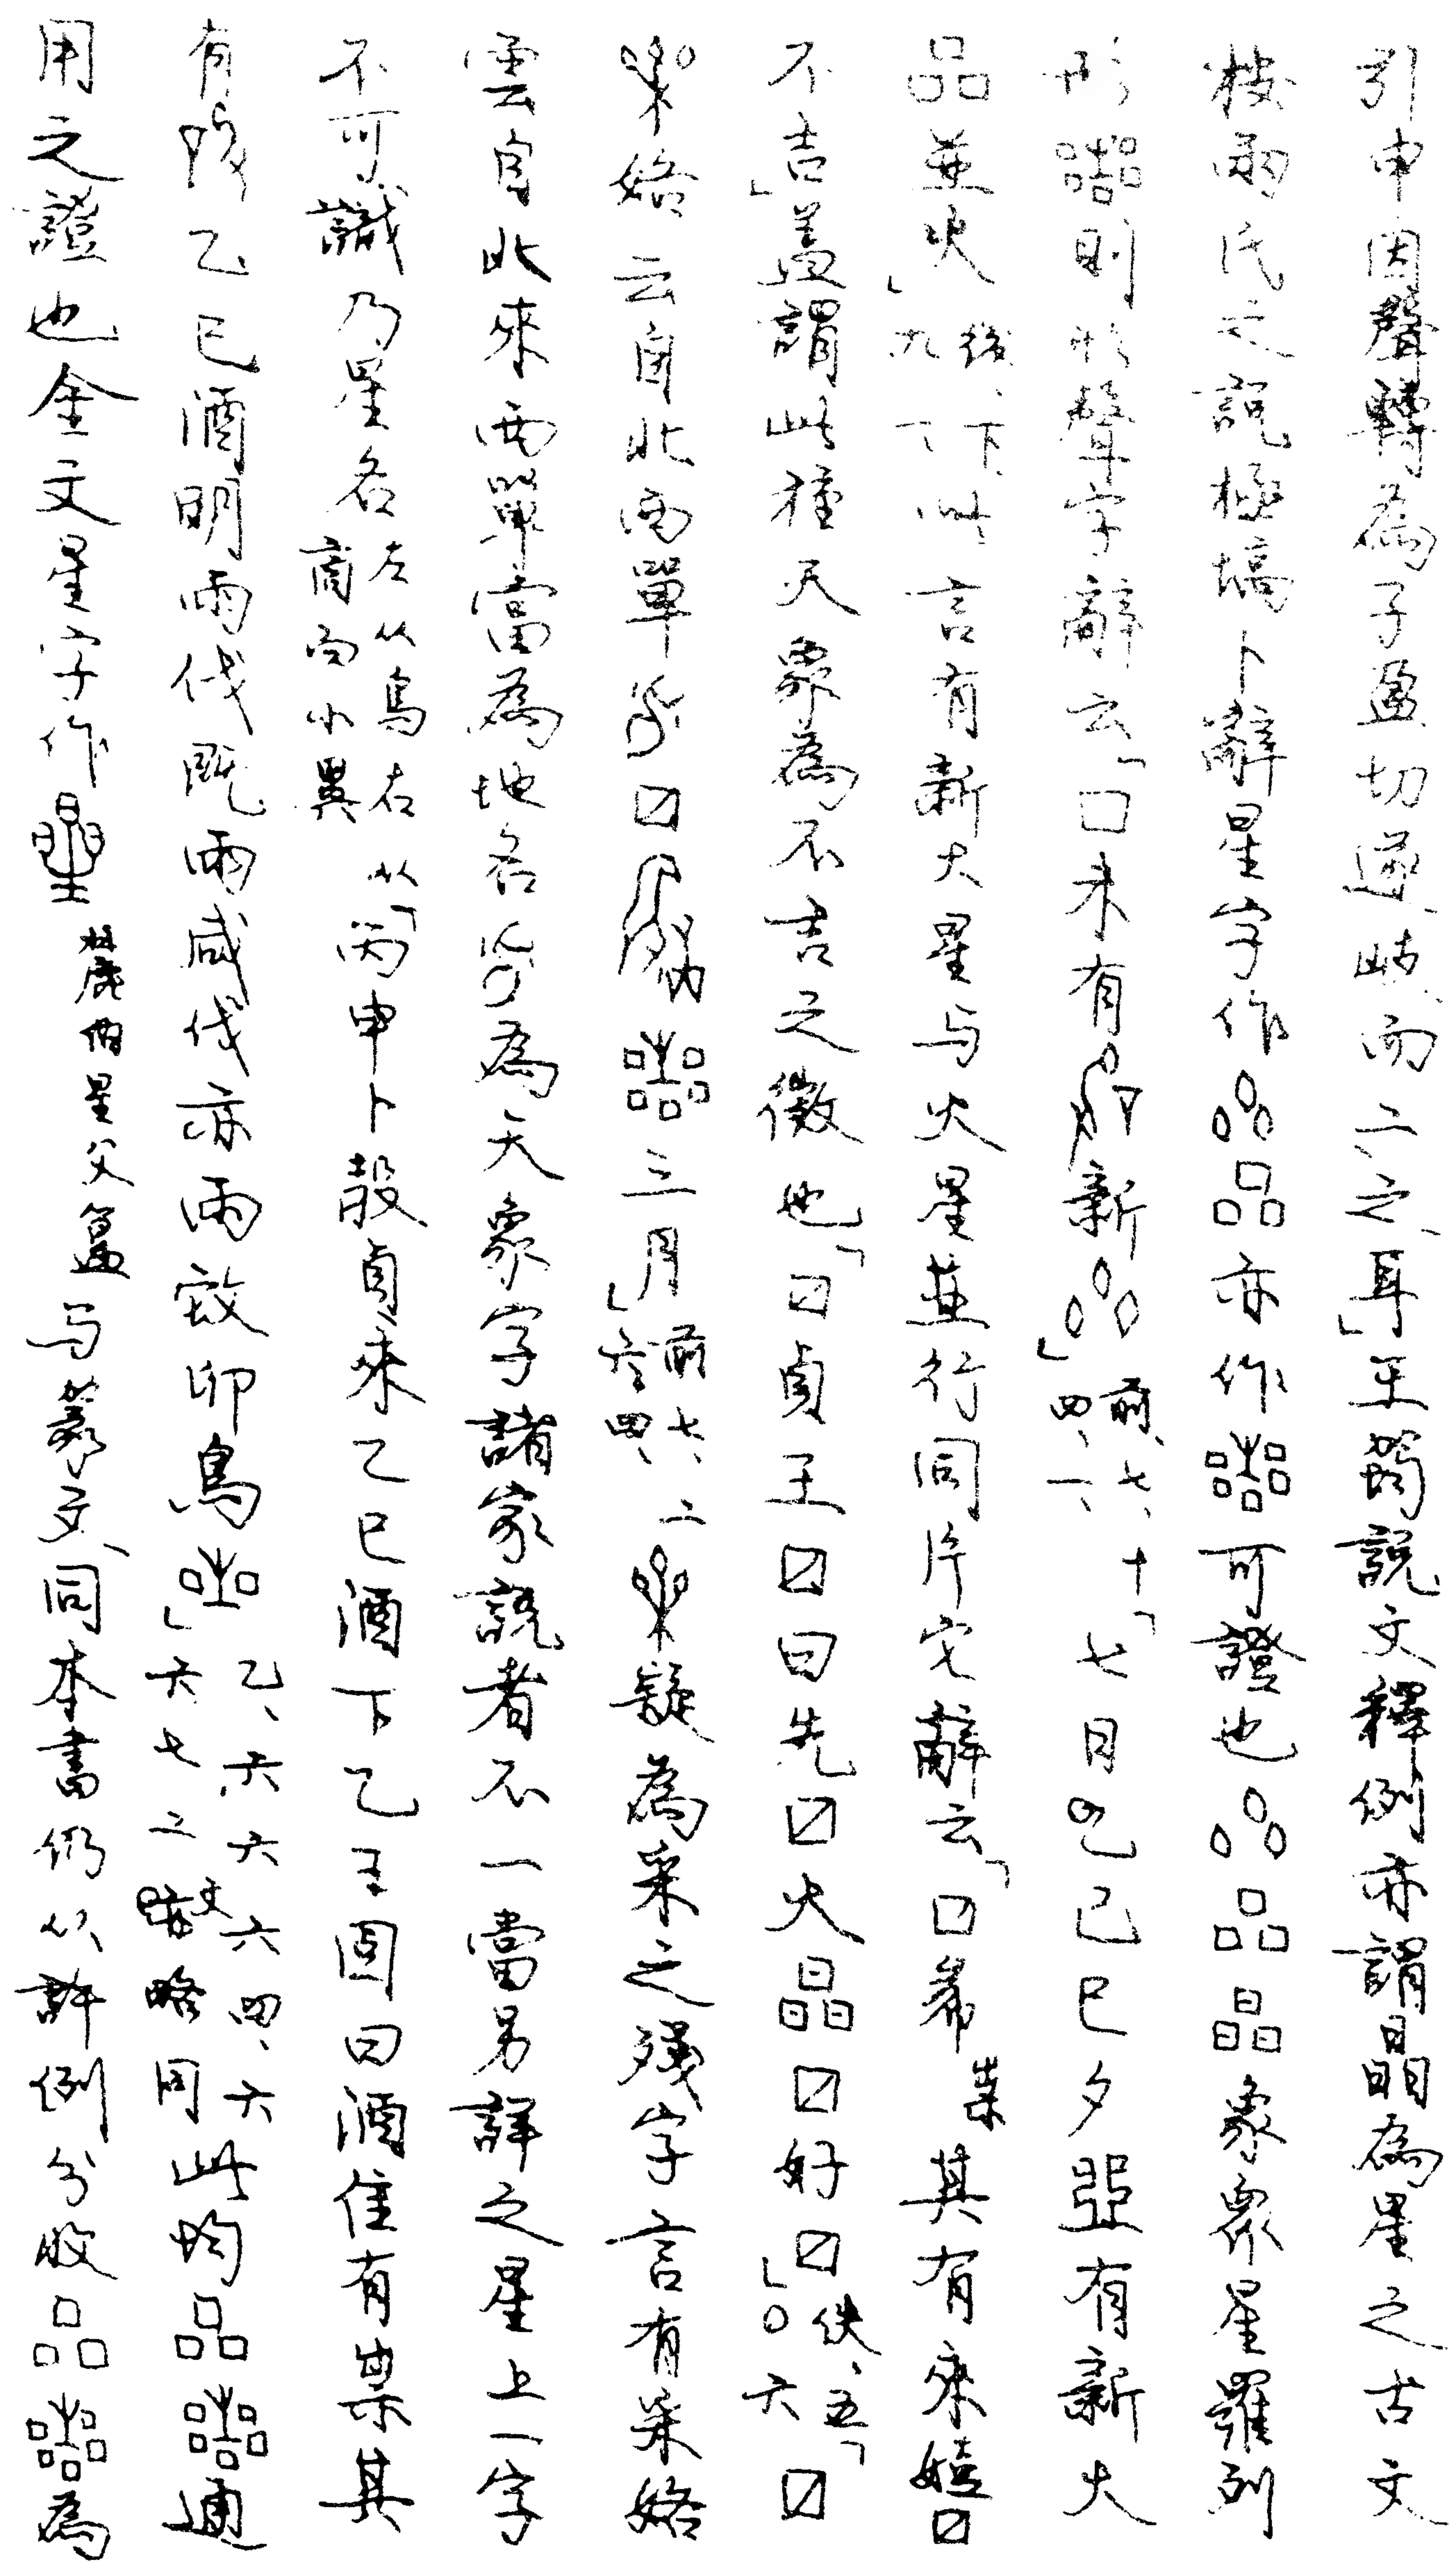 引申因聲轉為子盈切遂歧而二之耳」王筠說文釋例亦謂晶為星之古文
按兩氏之說極塙卜辭星字作品亦作可證也品晶象眾星羅列
形則形聲字辭云「□未有新」前、七、十四、一、「七月己巳夕有新大
品並火」後、下、九、一、此言有新大星与火星並行同片它辭云「☐希祟其有來㛸☐
不吉」蓋謂此種天象為不吉之徵也「☐貞王☐曰先☐大晶☐好☐」佚、五〇六「☐
㛭云自北西單☐三月」前七、二六、四、疑為采之殘字言有采㛭
雲自北來西單當為地名為天象字諸家說者不一當另詳之星上一字
不可識乃星名左从鳥右从商向小異「丙申卜㱿貞來乙巳酒下乙王固曰酒隹有祟其
有乙巳酒明雨伐既雨咸伐亦雨㱿卯鳥」乙、六六六四、六六七二文略同此均品通
用之證也金文星字作麓伯星父簋与篆文同本書仍从許例分收品為